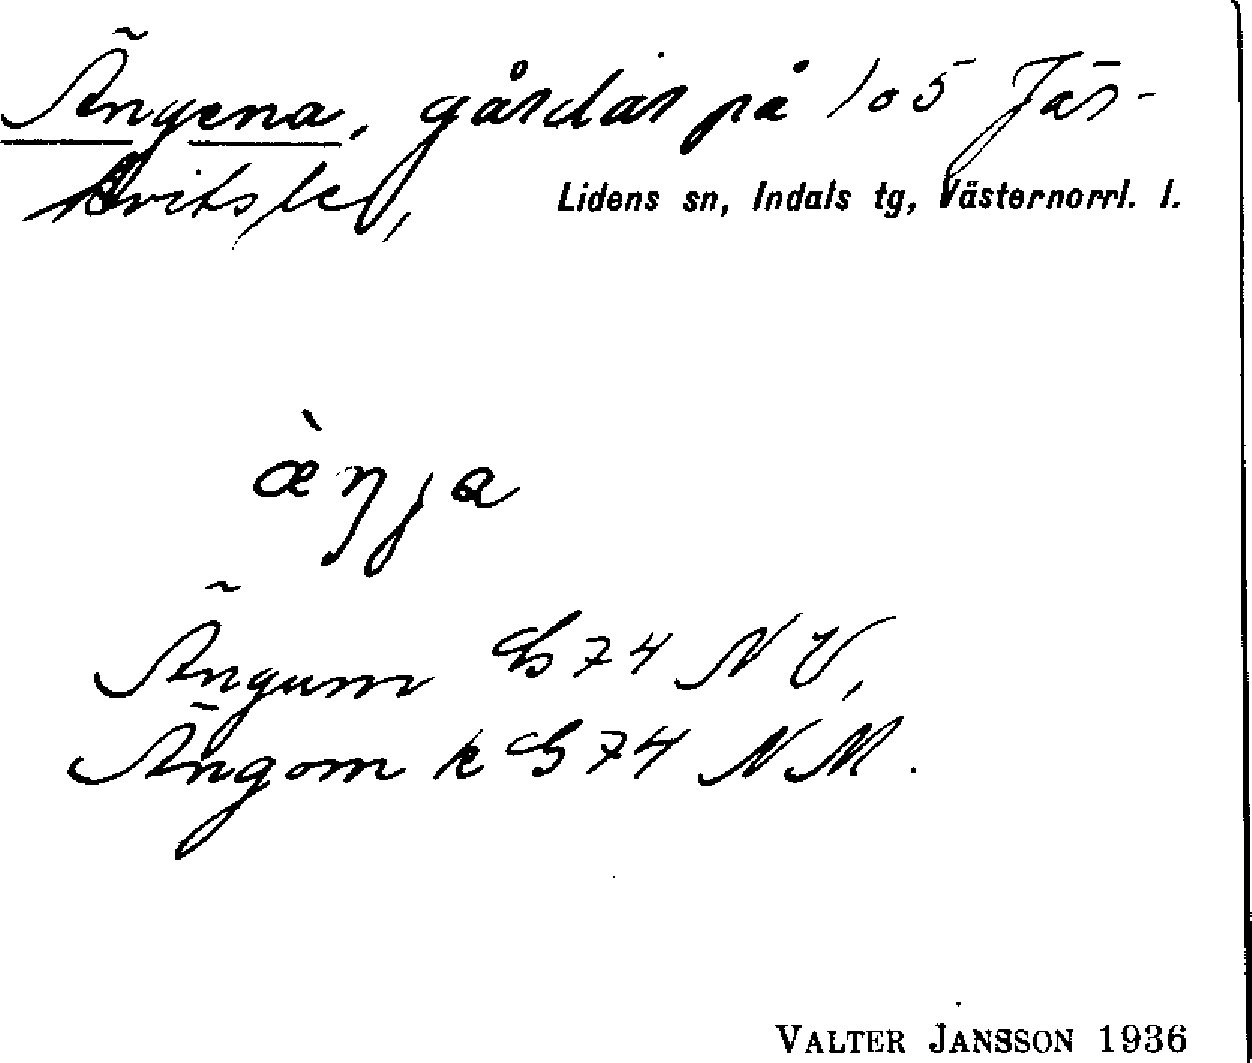 Ängena, gårdar på 105 Jär-
kvitsle,
Lidens sn, Indals tg, Västernorrl. l.
æ̀ŋja
Ängum G 74 NV,
Ängom k G 74 NM.
VALTER JANSSON 1936